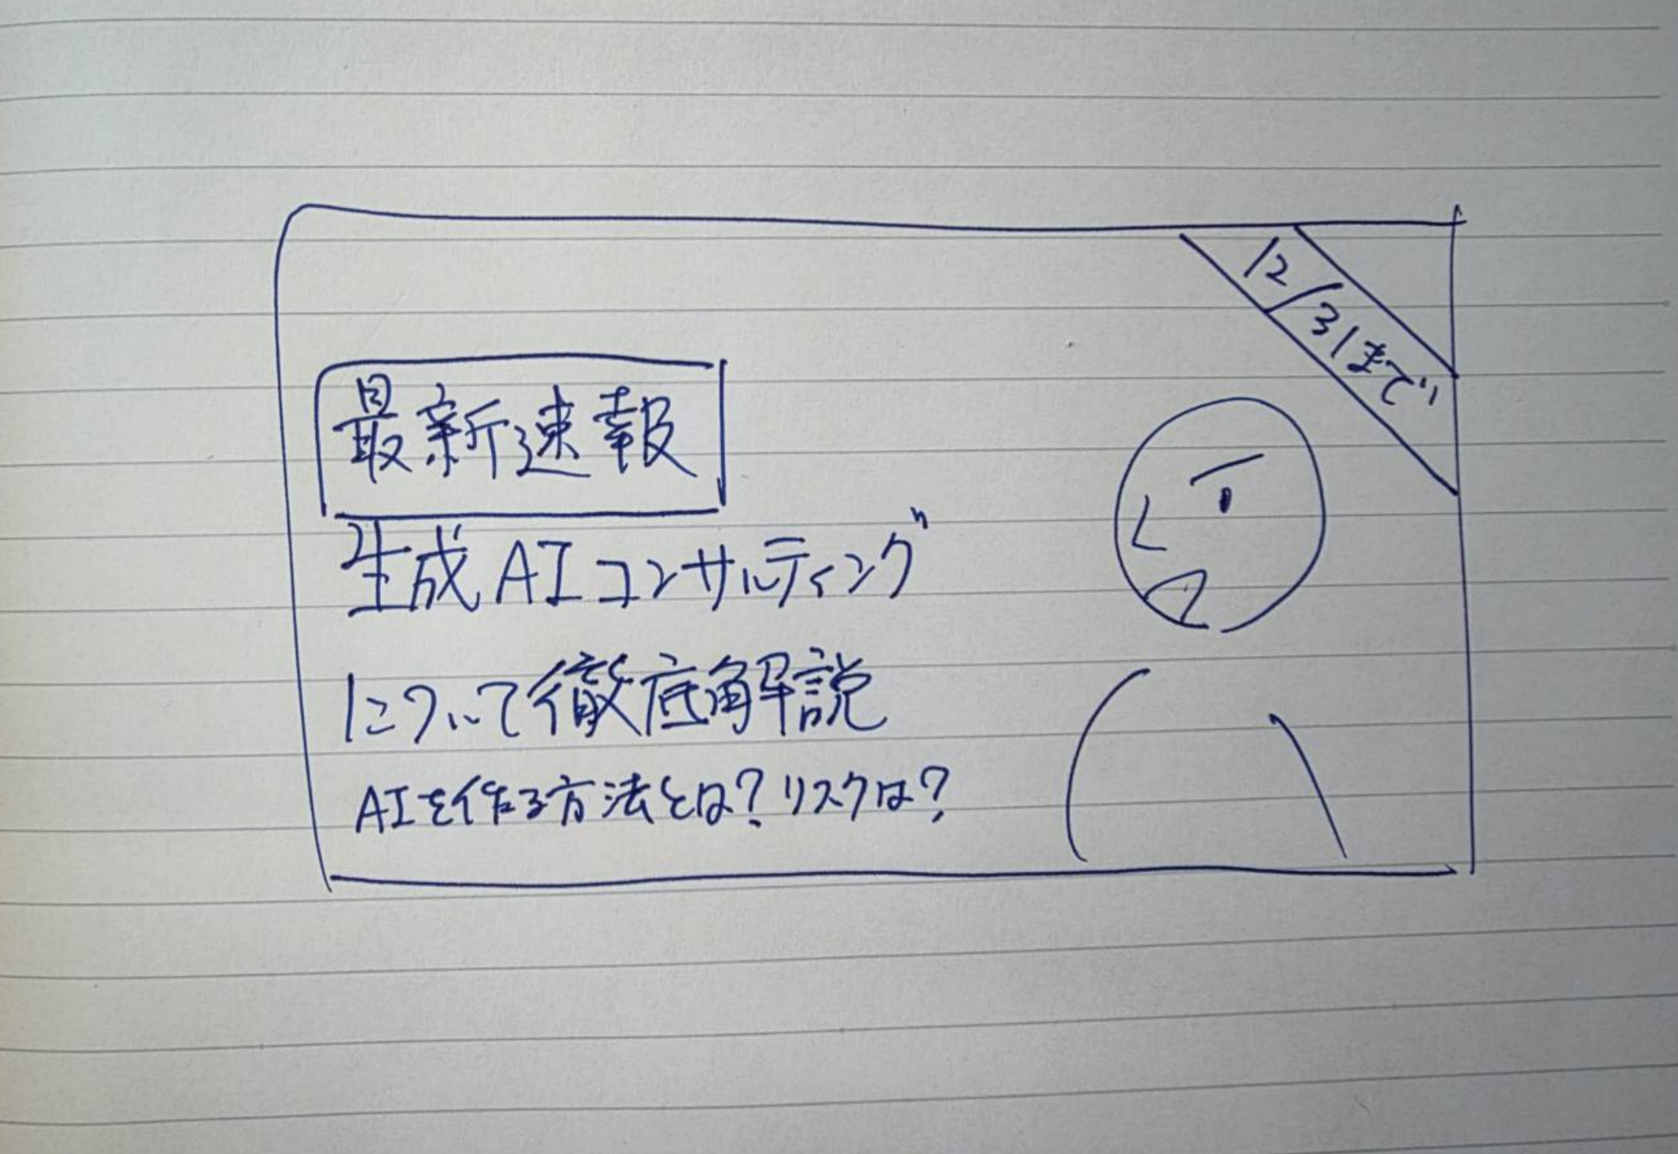 12/31まで
最新速報
生成AIコンサルティング
について徹底解説
AIを作る方法とは？リスクは？